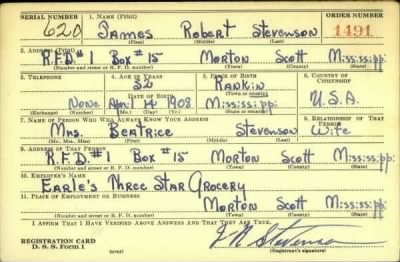 SERIAL NUMBER 1. NAME (Print) ORDER NUMBER
620 James Robert Stevenson 1491
(First) (Middle) (Last)
2. ADDRESS (Print)
R.F.D. #1 Box #15 Morton Scott Mississippi
(Number and street or R. F. D. number) (Town) (County) (State)
3. TELEPHONE 4. AGE IN YEARS 5. PLACE OF BIRTH 6. COUNTRY OF CITIZENSHIP
32 Rankin
DATE OF BIRTH (Town or county)
None April 14 1908 Mississippi U.S.A.
(Exchange) (Number) (Mo.) (Day) (Yr.) (State or country)
7. NAME OF PERSON WHO WILL ALWAYS KNOW YOUR ADDRESS 8. RELATIONSHIP OF THAT PERSON
Mrs. Beatrice Stevenson Wife
(Mr., Mrs., Miss) (First) (Middle) (Last)
9. ADDRESS OF THAT PERSON
R.F.D. #1 Box #15 Morton Scott Mississippi
(Number and street or R. F. D. number) (Town) (County) (State)
10. EMPLOYER'S NAME
Earle's Three Star Grocery
11. PLACE OF EMPLOYMENT OR BUSINESS
Morton Scott Mississippi
(Number and street or R. F. D. number) (Town) (County) (State)
I AFFIRM THAT I HAVE VERIFIED ABOVE ANSWERS AND THAT THEY ARE TRUE.
REGISTRATION CARD J R Stevenson
D. S. S. Form 1 (over) (Registrant's signature)